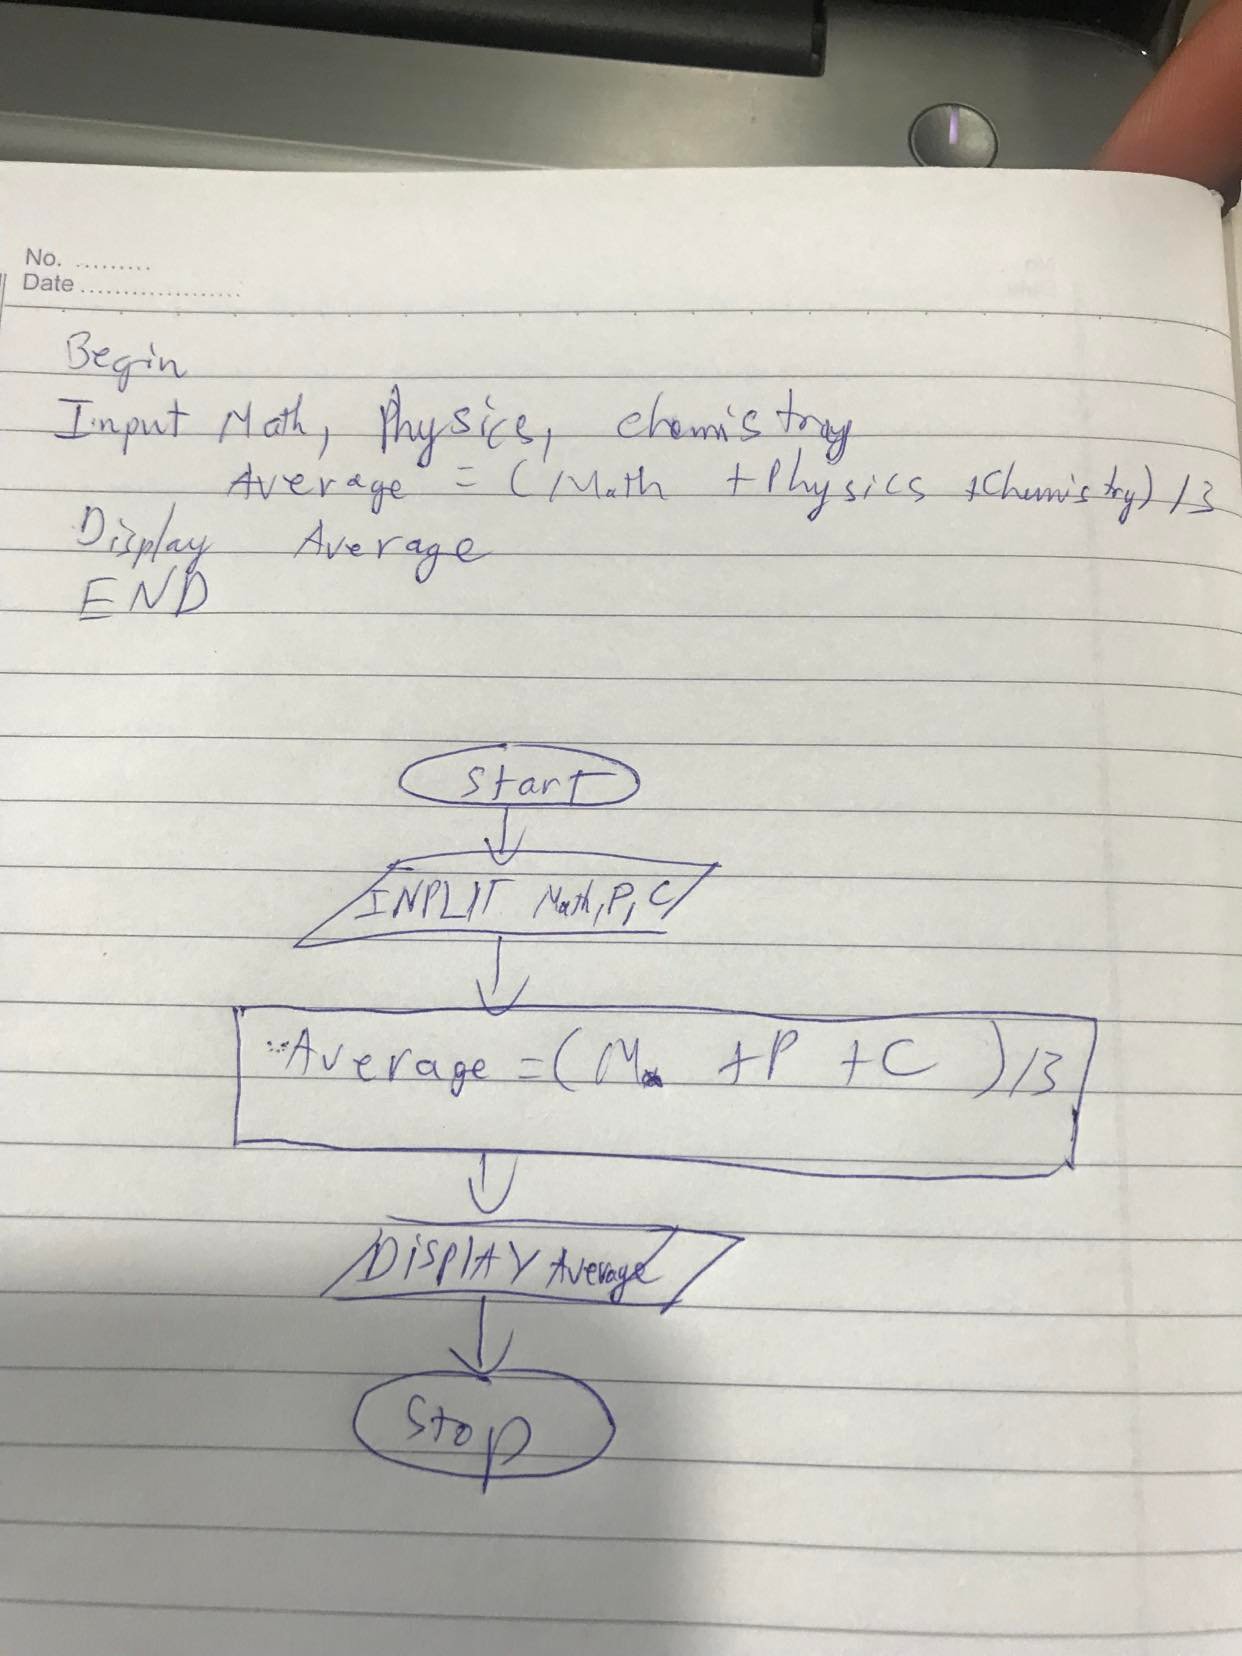 No. .........
Date ...................
Begin
Input Math, Physics, chemistry
Average = (Math + Physics + Chemistry) /3
Display Average
END
Start
INPUT Math, P, C
Average = (M + P + C ) /3
DISPLAY Average
Stop